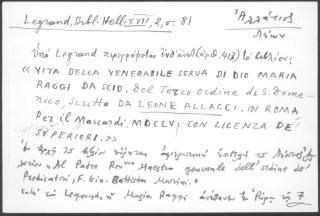 Legrand, Bibl. Hell. XVII, 2, σ. 81
Ἀλλάτιος
Λέων
ὑπὸ Legrand περιγράφεται (ἀριθ. 413) τὸ βιβλίον:
«VITA DELLA VENERABILE SERVA DI DIO MARIA
RAGGI DA SCIO. del Terzo ordine di S. Dome-
nico, scritta DA LEONE ALLACCI. IN ROMA
Per il Mascardi. MDCLV; CON LICENZA DE'
SVPERIORI.»
ἐν ἀρχῇ τοῦ βιβλίου
«Al Padre Rev.mo Maestro generale dell'ordine de'
Predicatori, F. Gio. Battista Marini.»
κατὰ τὸν Legrand, ἡ Μαρία Raggi ἀπέθανεν ἐν Ῥώμῃ τῇ 7